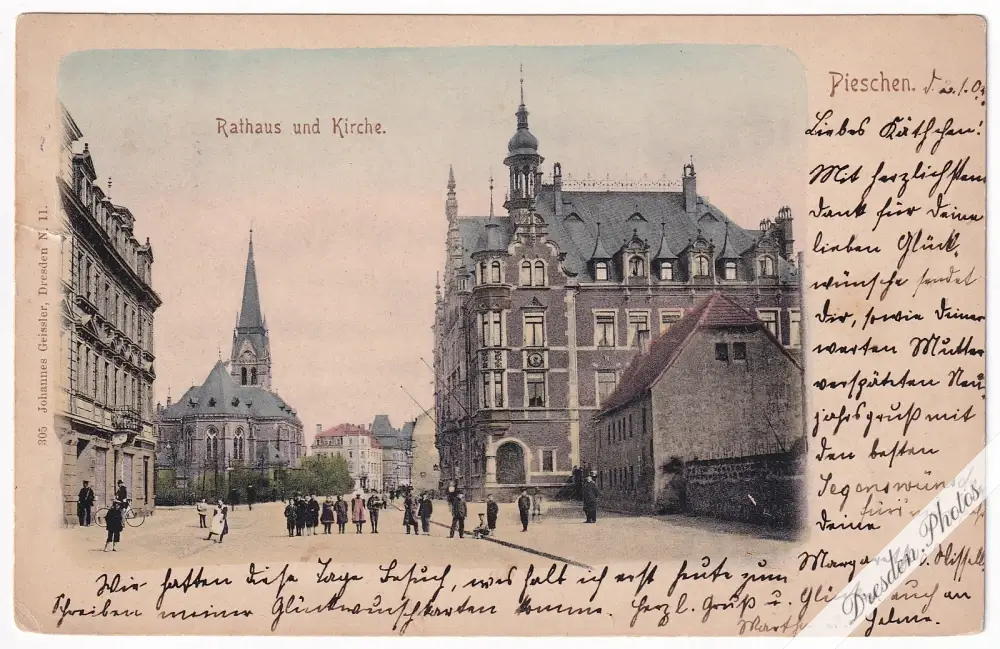 Rathaus und Kirche.
305 Johannes Geissler, Dresden N. 11.
Pieschen. d. 2. 1. 0
Liebes Käthchen!
Mit herzlichstem
Dank für Deine
lieben Glück-
wünsche sendet
Dir, sowie Deiner
werten Mutter
verspäteten Neu-
jahrsgruß mit
den besten
Segenswünsch
für
Deine
Wir hatten diese Tage Besuch, wes halb ich erst heute zum
Schreiben meiner Glückwunschkarten komme. Herzl. Gruß u.
auch an
Helme.
Dresden Photos